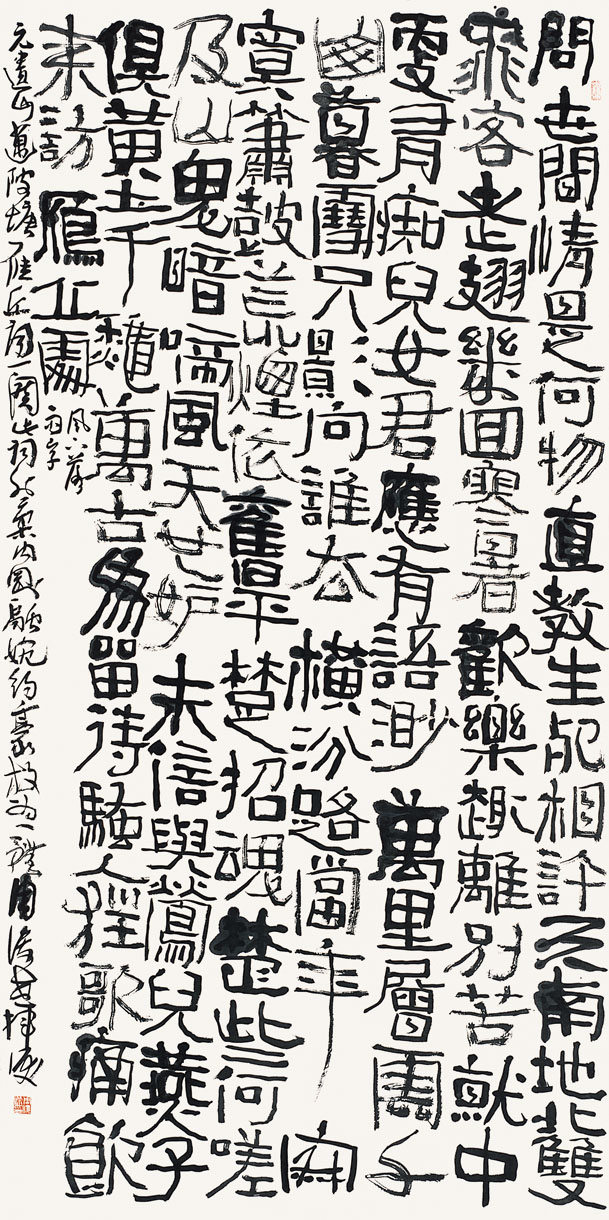 問世間情是何物直教生死相許天南地北雙
飛客老翅幾回寒暑歡樂趣離別苦就中
更有痴兒女君應有語渺萬里層雲千
山暮雪只景向誰去橫汾路當年寂
寞簫鼓荒煙依舊平楚招魂楚些何嗟
及山鬼暗啼風天也妒未信與鶯兒燕子
俱黃土千秋萬古為留待騷人狂歌痛飲
來訪雁丘處
風下落雨字
元遺山邁陂塘雁丘詞一闋此詞外柔內剛融婉約豪放為一體